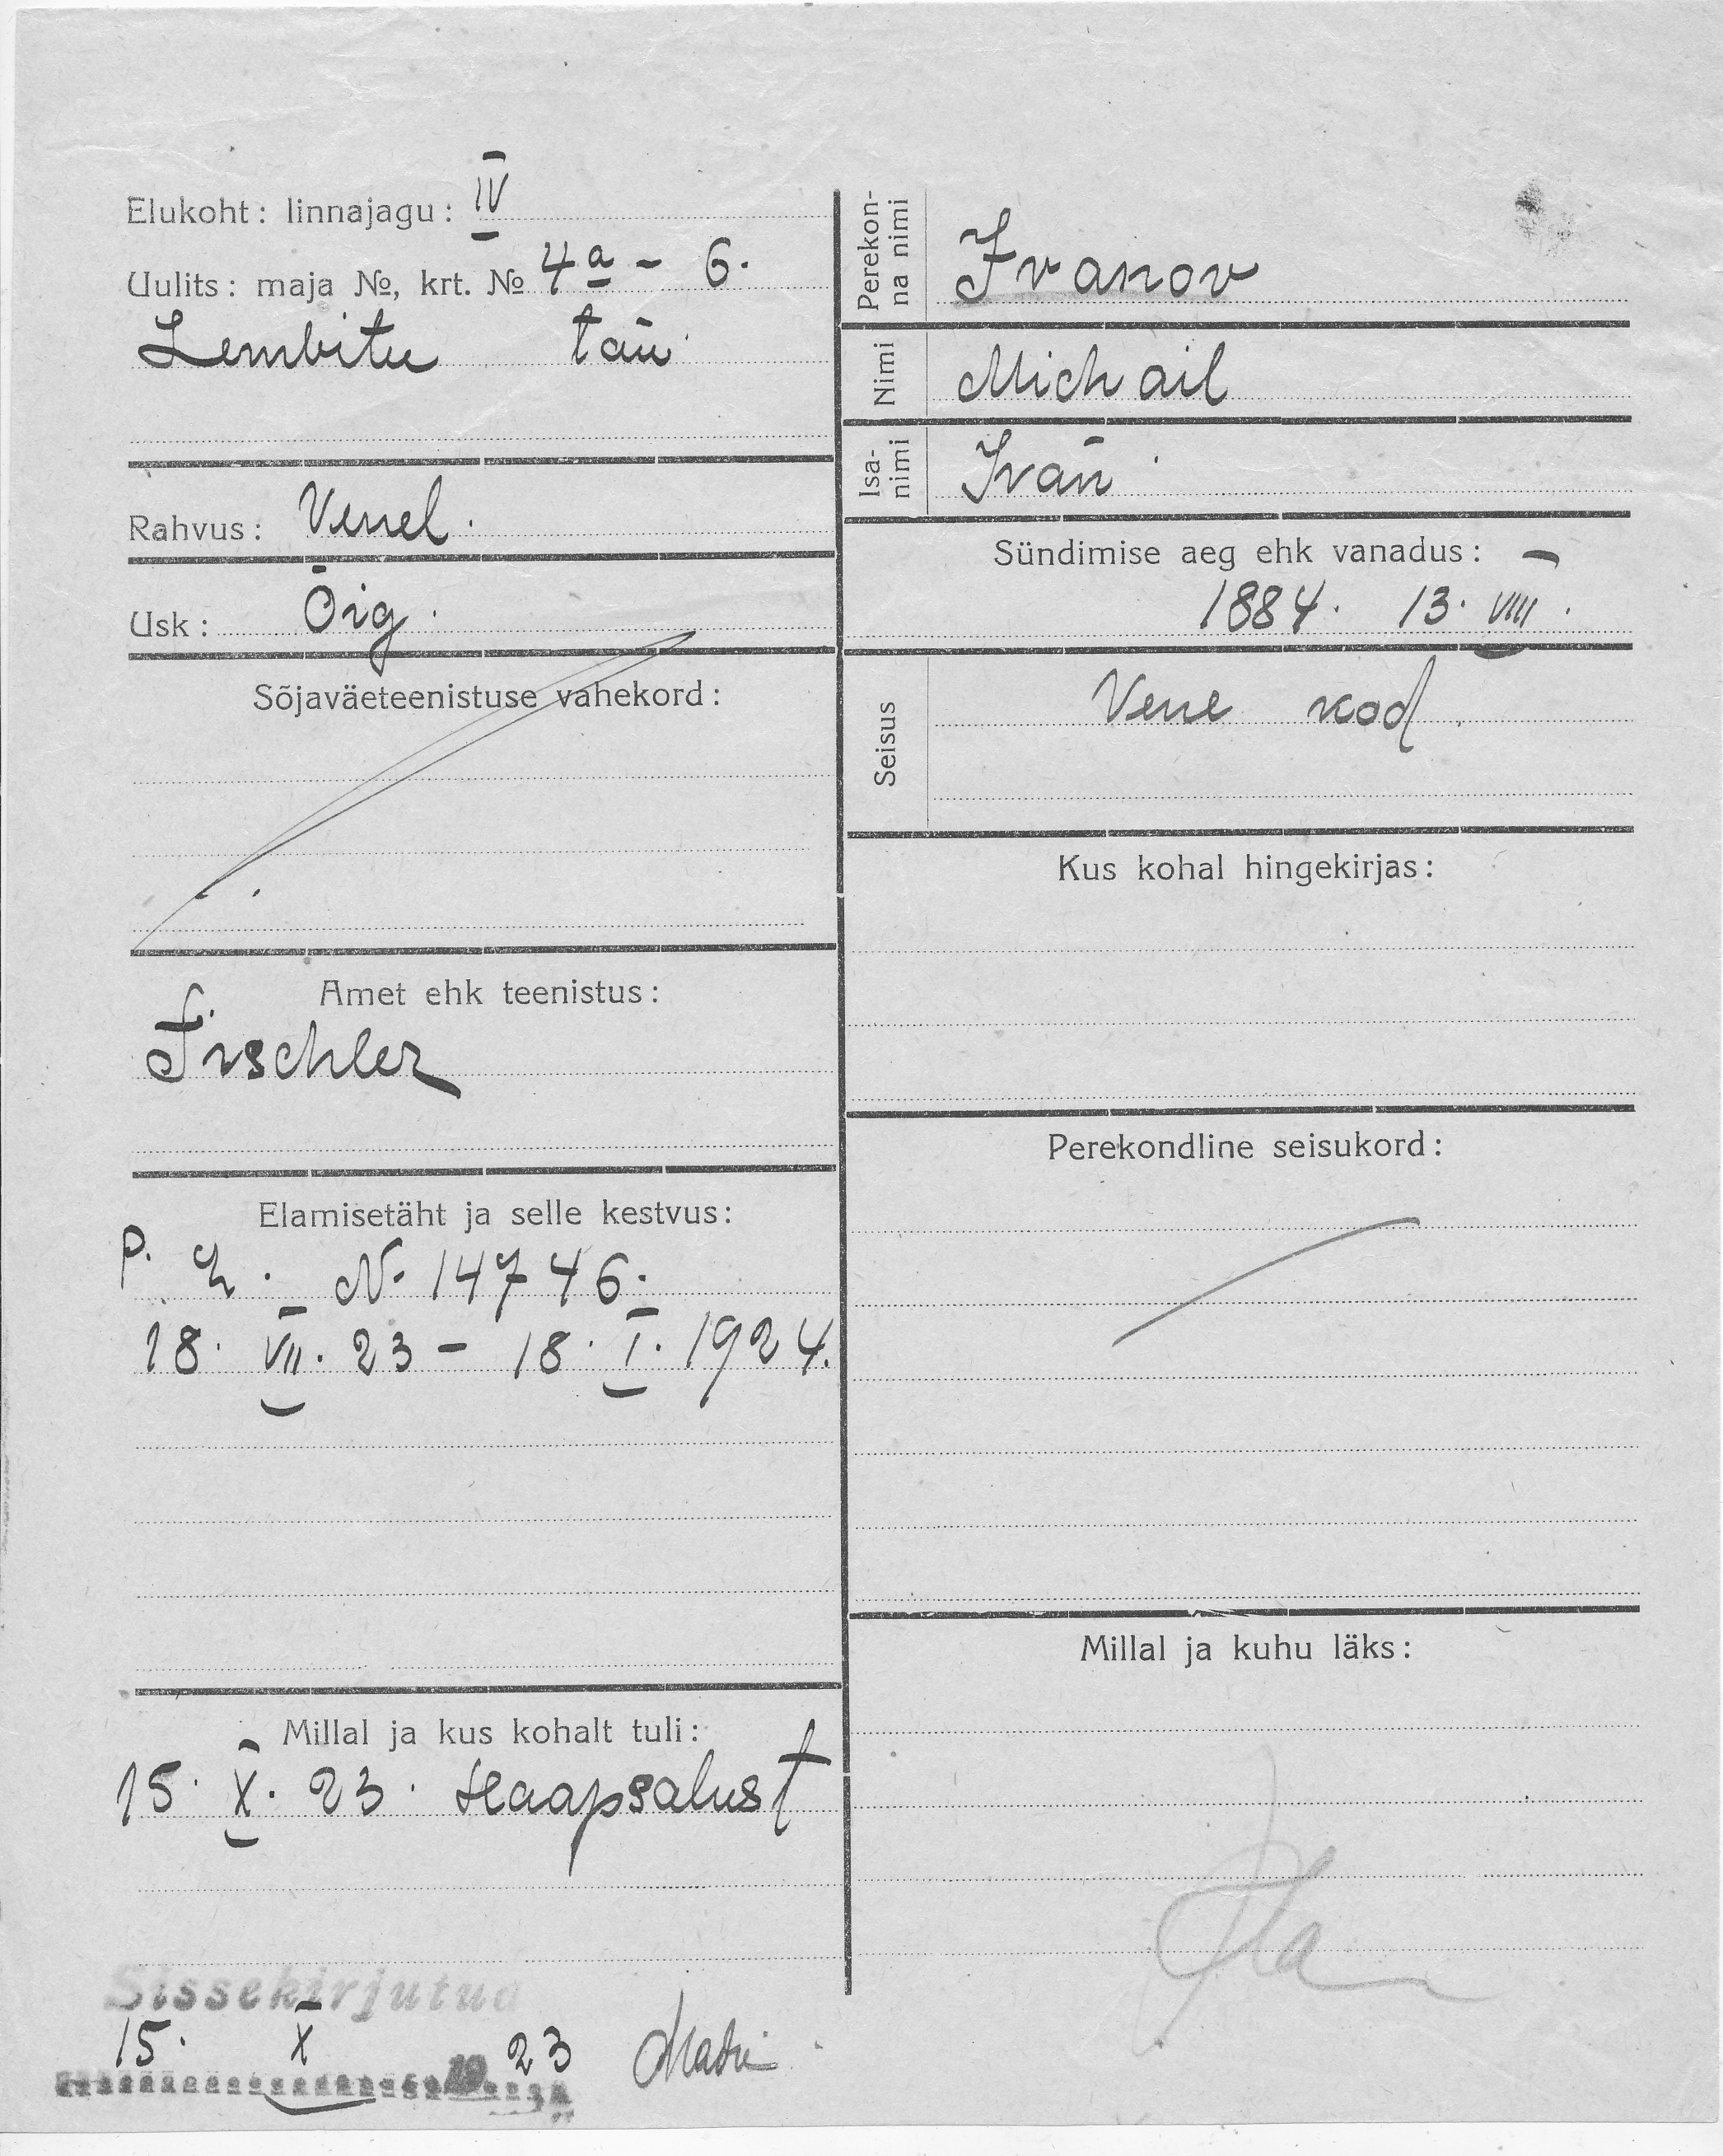 Elukoht: linnajagu: IV
Uulits: maja №, krt. № 4a - 6.
Lembitu tän
Rahvus: Venel.
Usk: Õig.
Sõjaväeteenistuse vahekord:
Amet ehk teenistus:
Tischler
Elamisetäht ja selle kestvus:
P. L. N. 14746.
18. VII. 23 - 18. I. 1924.
Millal ja kus kohalt tuli:
15. X. 23. Haapsalust
Sissekirjutud
15. X 1923
Perekon-
na nimi
Ivanov
Nimi
Michail
Isa-
nimi
Ivan
Sündimise aeg ehk vanadus:
1884. 13. VIII.
Seisus
Vene kod.
Kus kohal hingekirjas:
Perekondline seisukord:
Millal ja kuhu läks: